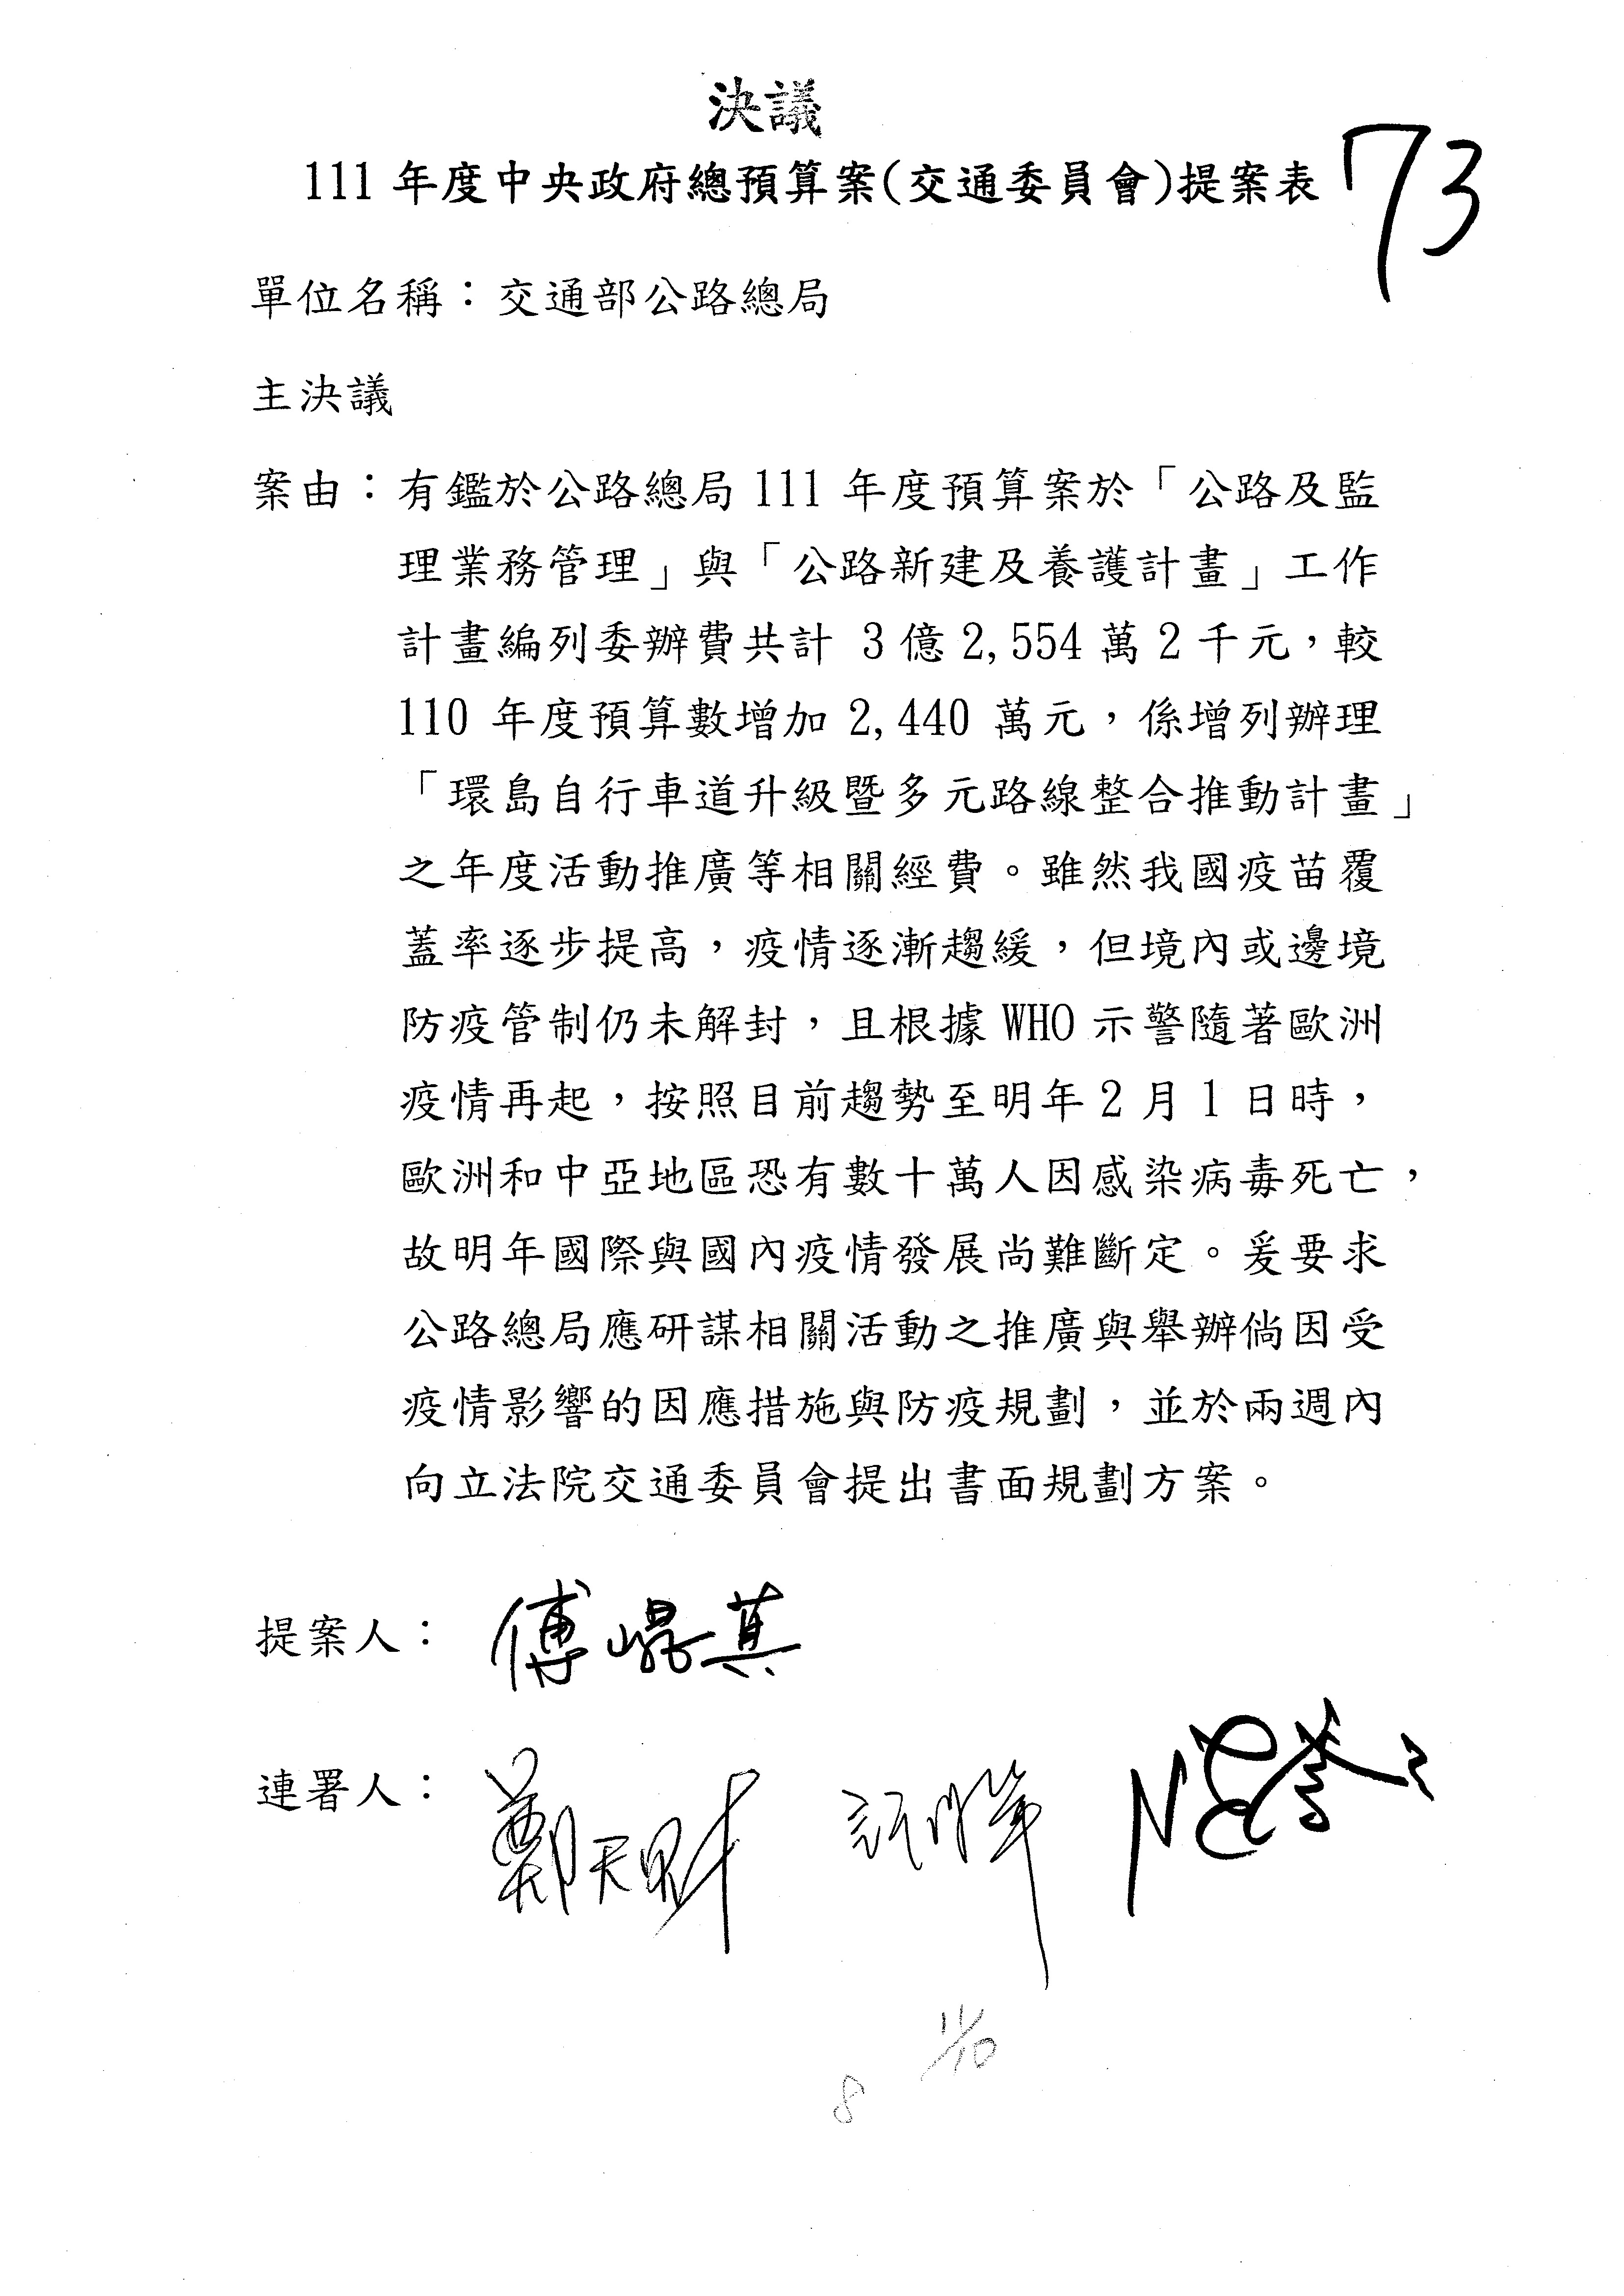 決議
111 年度中央政府總預算案(交通委員會)提案表
73
單位名稱：交通部公路總局
主決議
案由：有鑑於公路總局 111 年度預算案於「公路及監
理業務管理」與「公路新建及養護計畫」工作
計畫編列委辦費共計 3 億 2,554 萬 2 千元，較
110 年度預算數增加 2,440 萬元，係增列辦理
「環島自行車道升級暨多元路線整合推動計畫」
之年度活動推廣等相關經費。雖然我國疫苗覆
蓋率逐步提高，疫情逐漸趨緩，但境內或邊境
防疫管制仍未解封，且根據 WHO 示警隨著歐洲
疫情再起，按照目前趨勢至明年 2 月 1 日時，
歐洲和中亞地區恐有數十萬人因感染病毒死亡，
故明年國際與國內疫情發展尚難斷定。爰要求
公路總局應研謀相關活動之推廣與舉辦倘因受
疫情影響的因應措施與防疫規劃，並於兩週內
向立法院交通委員會提出書面規劃方案。
提案人：傅崐萁
連署人：鄭天財
11/10
8